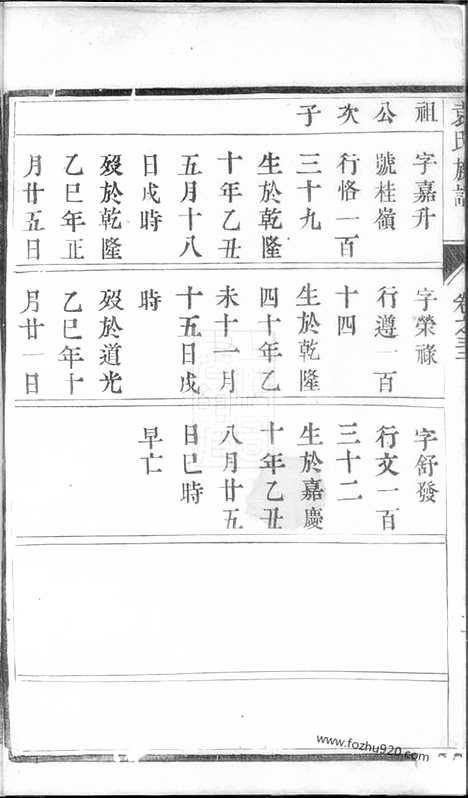 袁氏族譜
卷之三
祖公次子
字嘉升
號桂嶺
行恪一百
三十九
生於乾隆
十年乙丑
五月十八
日戌時
歿於乾隆
乙巳年正
月廿五日
字榮祿
行遵一百
十四
生於乾隆
四十年乙
未十一月
十五日戌
時
歿於道光
乙巳年十
月廿一日
字舒發
行文一百
三十二
生於嘉慶
十年乙丑
八月廿五
日巳時
早亡
www.fozhu920.com